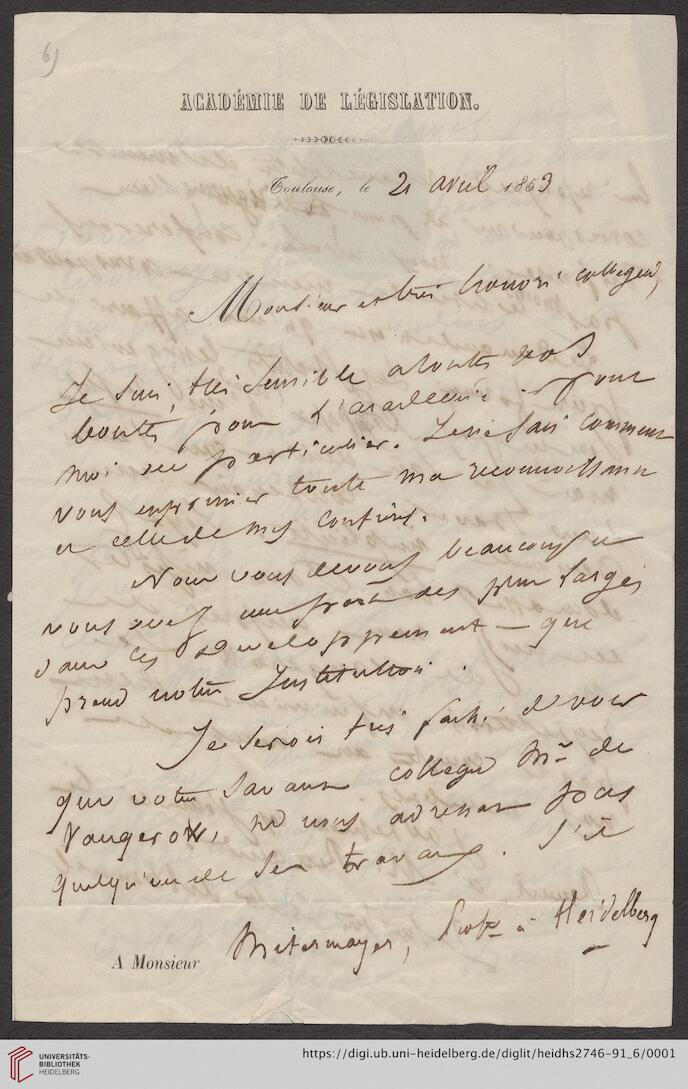 6)
ACADÉMIE DE LÉGISLATION.
Toulouse, le 21 avril 1853
Monsieur et très honoré collègue,
Je suis, très sensible à toutes vos
bontés pour l'académie. pour
moi en particulier. Je ne sais comment
vous exprimer toute ma reconnaissance
et celle de mes confrères.
Nous vous devons beaucoup et
vous avez une part des plus larges
dans les développement - que
prend notre Institution.
Je serois très faché de voir
que votre savant collegue Mr de
Vangerow, ne nous adressat pas
quelqu'un de ses travaux. S'il
A Monsieur Mitermayer, Profr à Heidelberg
UNIVERSITÄTS-
BIBLIOTHEK
HEIDELBERG
https://digi.ub.uni-heidelberg.de/diglit/heidhs2746-91_6/0001